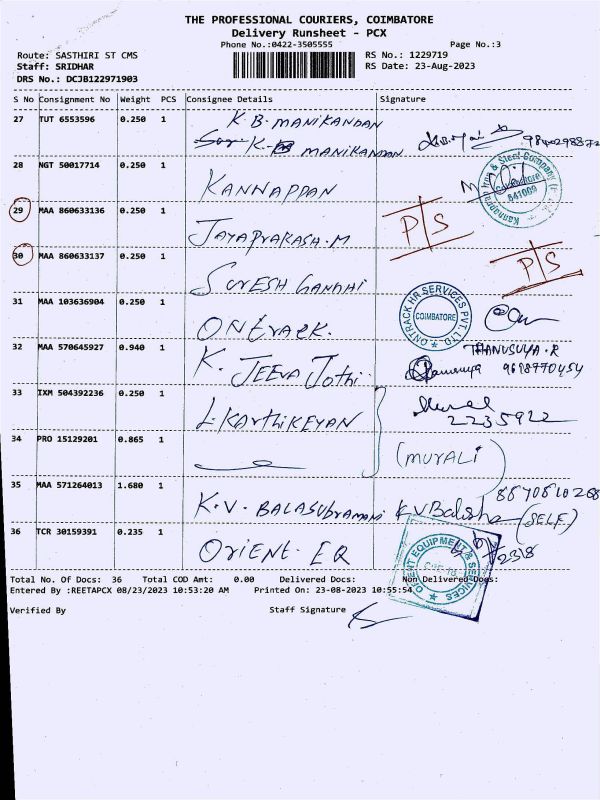 THE PROFESSIONAL COURIERS, COIMBATORE
Delivery Runsheet - PCX
Phone No.:0422-3505555
Page No.:3
Route: SASTHIRI ST CMS
RS No.: 1229719
Staff: SRIDHAR
RS Date: 23-Aug-2023
DRS No.: DCJB122971903
S No Consignment No Weight PCS Consignee Details Signature
27 TUT 6553596 0.250 1 K.B. MANIKANDAN
K. MANIKANDAN
28 NGT 50017714 0.250 1 KANNAPPAN
Kannappan Iron & Steel Company
Coimbatore
641009
29 MAA 860633136 0.250 1 JAYAPRAKASH.M P/S
30 MAA 860633137 0.250 1 SURESH GANDHI P/S
31 MAA 103636904 0.250 1 ONtrack.
ONTRACK HR SERVICES PVT. LTD.
COIMBATORE
32 MAA 570645927 0.940 1 K. JEEVA Jothi
THANUSUYA.R
9698770454
33 IXM 504392236 0.250 1 L.KARTHIKEYAN
2235922
34 PRO 15129201 0.865 1 (MURALI)
35 MAA 571264013 1.680 1 K.V. BALASUbramani KVBalasha (SELF)
8870810268
36 TCR 30159391 0.235 1 Orient. EQ
ORIENT EQUIPMENT & SERVICES
Total No. Of Docs: 36 Total COD Amt: 0.00 Delivered Docs: Non Delivered Docs:
Entered By :REETAPCX 08/23/2023 10:53:20 AM Printed On: 23-08-2023 10:55:54
Verified By Staff Signature